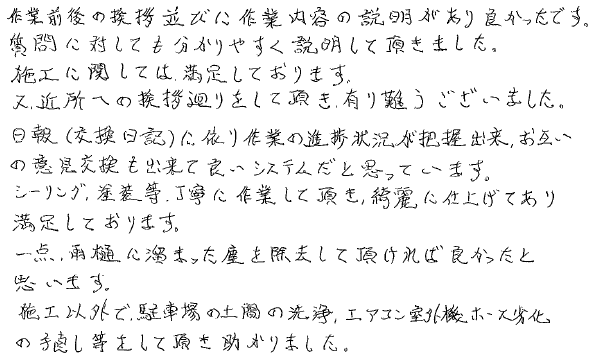 作業前後の挨拶並びに作業内容の説明があり良かったです。
質問に対しても分かりやすく説明して頂きました。
施工に関しては、満足しております。
又、近所への挨拶廻りをして頂き、有り難うございました。
日報(交換日記)に依り作業の進捗状況が把握出来、お互い
の意見交換も出来て良いシステムだと思っています。
シーリング、塗装等、丁寧に作業して頂き、綺麗に仕上げてあり
満足しております。
一点、雨樋に溜まった塵を除去して頂ければ良かったと
思います。
施工以外で、駐車場の土間の洗浄、エアコン室外機ホース劣化
の手直し等をして頂き助かりました。